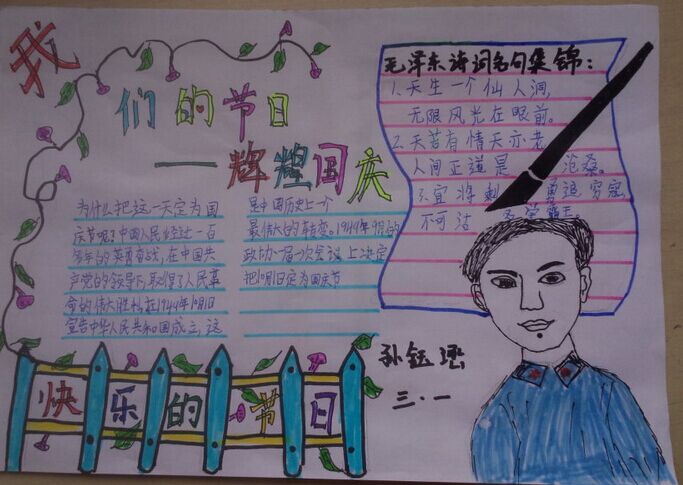 我
们的节日
——辉煌国庆
为什么把这一天定为国
庆节呢?中国人民经过一百
多年的英勇奋战,在中国共
产党的领导下,取得了人民革
命的伟大胜利,在1949年10月1日
宣告中华人民共和国成立,这
是中国历史上一个
最伟大的转变。1949年9月的
政协一届一次会议上决定
把10月1日定为国庆节
毛泽东诗词名句集锦:
1.天生一个仙人洞,
无限风光在眼前。
2.天若有情天亦老
人间正道是 沧桑。
3.宜将剩 勇追穷寇
不可沽 名学霸王。
孙钰
三·一
快乐的节日